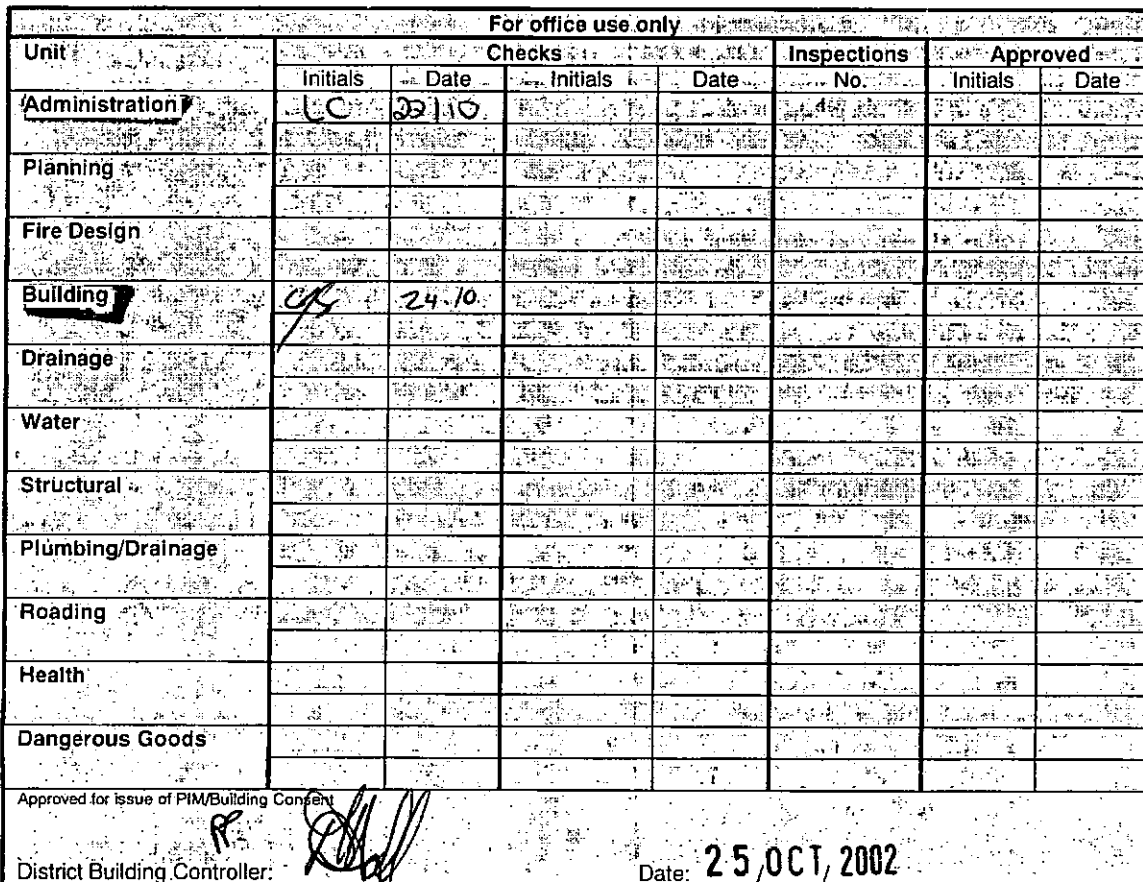 For office use only
Unit Checks Inspections Approved
Initials Date Initials Date No. Initials Date
Administration LC 22/10
Planning
Fire Design
Building 24.10
Drainage
Water
Structural
Plumbing/Drainage
Roading
Health
Dangerous Goods
Approved for issue of PIM/Building Consent
PP.
District Building Controller: Date: 25 OCT 2002